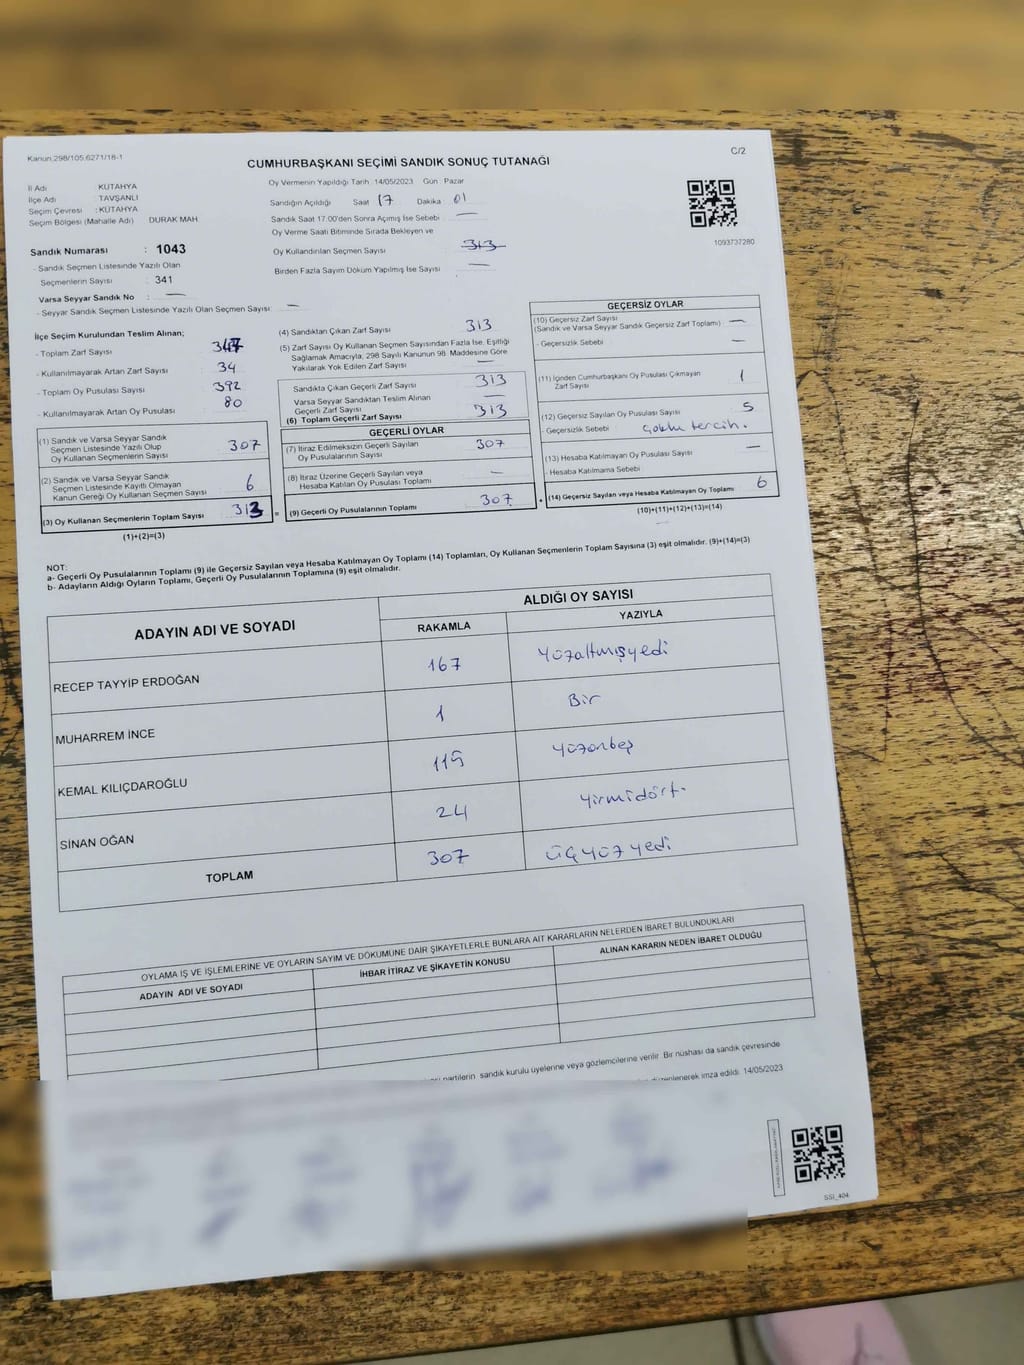 Kanun.298/105,6271/18-1
C/2
CUMHURBAŞKANI SEÇİMİ SANDIK SONUÇ TUTANAĞI
İl Adı KÜTAHYA
İlçe Adı TAVŞANLI
Seçim Çevresi : KÜTAHYA
Seçim Bölgesi (Mahalle Adı) DURAK MAH
Oy Vermenin Yapıldığı Tarih 14/05/2023 Gün : Pazar
Sandığın Açıldığı Saat 17 Dakika 01
Sandık Saat 17.00'den Sonra Açımış İse Sebebi —
Oy Verme Saati Bitiminde Sırada Bekleyen ve
Oy Kullandırılan Seçmen Sayısı 313
Birden Fazla Sayım Döküm Yapılmış İse Sayısı —
1093737280
Sandık Numarası : 1043
- Sandık Seçmen Listesinde Yazılı Olan
Seçmenlerin Sayısı : 341
Varsa Seyyar Sandık No : —
- Seyyar Sandık Seçmen Listesinde Yazılı Olan Seçmen Sayısı: —
İlçe Seçim Kurulundan Teslim Alınan;
- Toplam Zarf Sayısı 347
- Kullanılmayarak Artan Zarf Sayısı 34
- Toplam Oy Pusulası Sayısı 392
- Kullanılmayarak Artan Oy Pusulası 80
(1) Sandık ve Varsa Seyyar Sandık
Seçmen Listesinde Yazılı Olup
Oy Kullanan Seçmenlerin Sayısı 307
(2) Sandık ve Varsa Seyyar Sandık
Seçmen Listesinde Kayıtlı Olmayan
Kanun Gereği Oy Kullanan Seçmen Sayısı 6
(3) Oy Kullanan Seçmenlerin Toplam Sayısı 313 =
(1)+(2)=(3)
(4) Sandıktan Çıkan Zarf Sayısı 313
(5) Zarf Sayısı Oy Kullanan Seçmen Sayısından Fazla İse, Eşitliği
Sağlamak Amacıyla, 298 Sayılı Kanunun 98. Maddesine Göre
Yakılarak Yok Edilen Zarf Sayısı —
Sandıkta Çıkan Geçerli Zarf Sayısı 313
Varsa Seyyar Sandıktan Teslim Alınan
Geçerli Zarf Sayısı —
(6) Toplam Geçerli Zarf Sayısı 313
GEÇERLİ OYLAR
(7) İtiraz Edilmeksizin Geçerli Sayılan
Oy Pusulalarının Sayısı 307
(8) İtiraz Üzerine Geçerli Sayılan veya
Hesaba Katılan Oy Pusulası Toplamı —
(9) Geçerli Oy Pusulalarının Toplamı 307 +
GEÇERSİZ OYLAR
(10) Geçersiz Zarf Sayısı
(Sandık ve Varsa Seyyar Sandık Geçersiz Zarf Toplamı) —
- Geçersizlik Sebebi —
(11) İçinden Cumhurbaşkanı Oy Pusulası Çıkmayan
Zarf Sayısı 1
(12) Geçersiz Sayılan Oy Pusulası Sayısı 5
- Geçersizlik Sebebi : Çoklu tercih.
(13) Hesaba Katılmayan Oy Pusulası Sayısı —
- Hesaba Katılmama Sebebi
(14) Geçersiz Sayılan veya Hesaba Katılmayan Oy Toplamı 6
(10)+(11)+(12)+(13)=(14)
NOT:
a- Geçerli Oy Pusulalarının Toplamı (9) ile Geçersiz Sayılan veya Hesaba Katılmayan Oy Toplamı (14) Toplamları, Oy Kullanan Seçmenlerin Toplam Sayısına (3) eşit olmalıdır. (9)+(14)=(3)
b- Adayların Aldığı Oyların Toplamı, Geçerli Oy Pusulalarının Toplamına (9) eşit olmalıdır.
ADAYIN ADI VE SOYADI
ALDIĞI OY SAYISI
RAKAMLA YAZIYLA
RECEP TAYYİP ERDOĞAN 167 Yüzaltmışyedi
MUHARREM İNCE 1 Bir
KEMAL KILIÇDAROĞLU 115 Yüzonbeş
SİNAN OĞAN 24 Yirmidört.
TOPLAM 307 üçyüzyedi
OYLAMA İŞ VE İŞLEMLERİNE VE OYLARIN SAYIM VE DÖKÜMÜNE DAİR ŞİKAYETLERLE BUNLARA AİT KARARLARIN NELERDEN İBARET BULUNDUKLARI
ADAYIN ADI VE SOYADI
İHBAR İTİRAZ VE ŞİKAYETİN KONUSU
ALINAN KARARIN NEDEN İBARET OLDUĞU
partilerin sandık kurulu üyelerine veya gözlemcilerine verilir. Bir nüshası da sandık çevresinde
düzenlenerek imza edildi. 14/05/2023
SSI_404